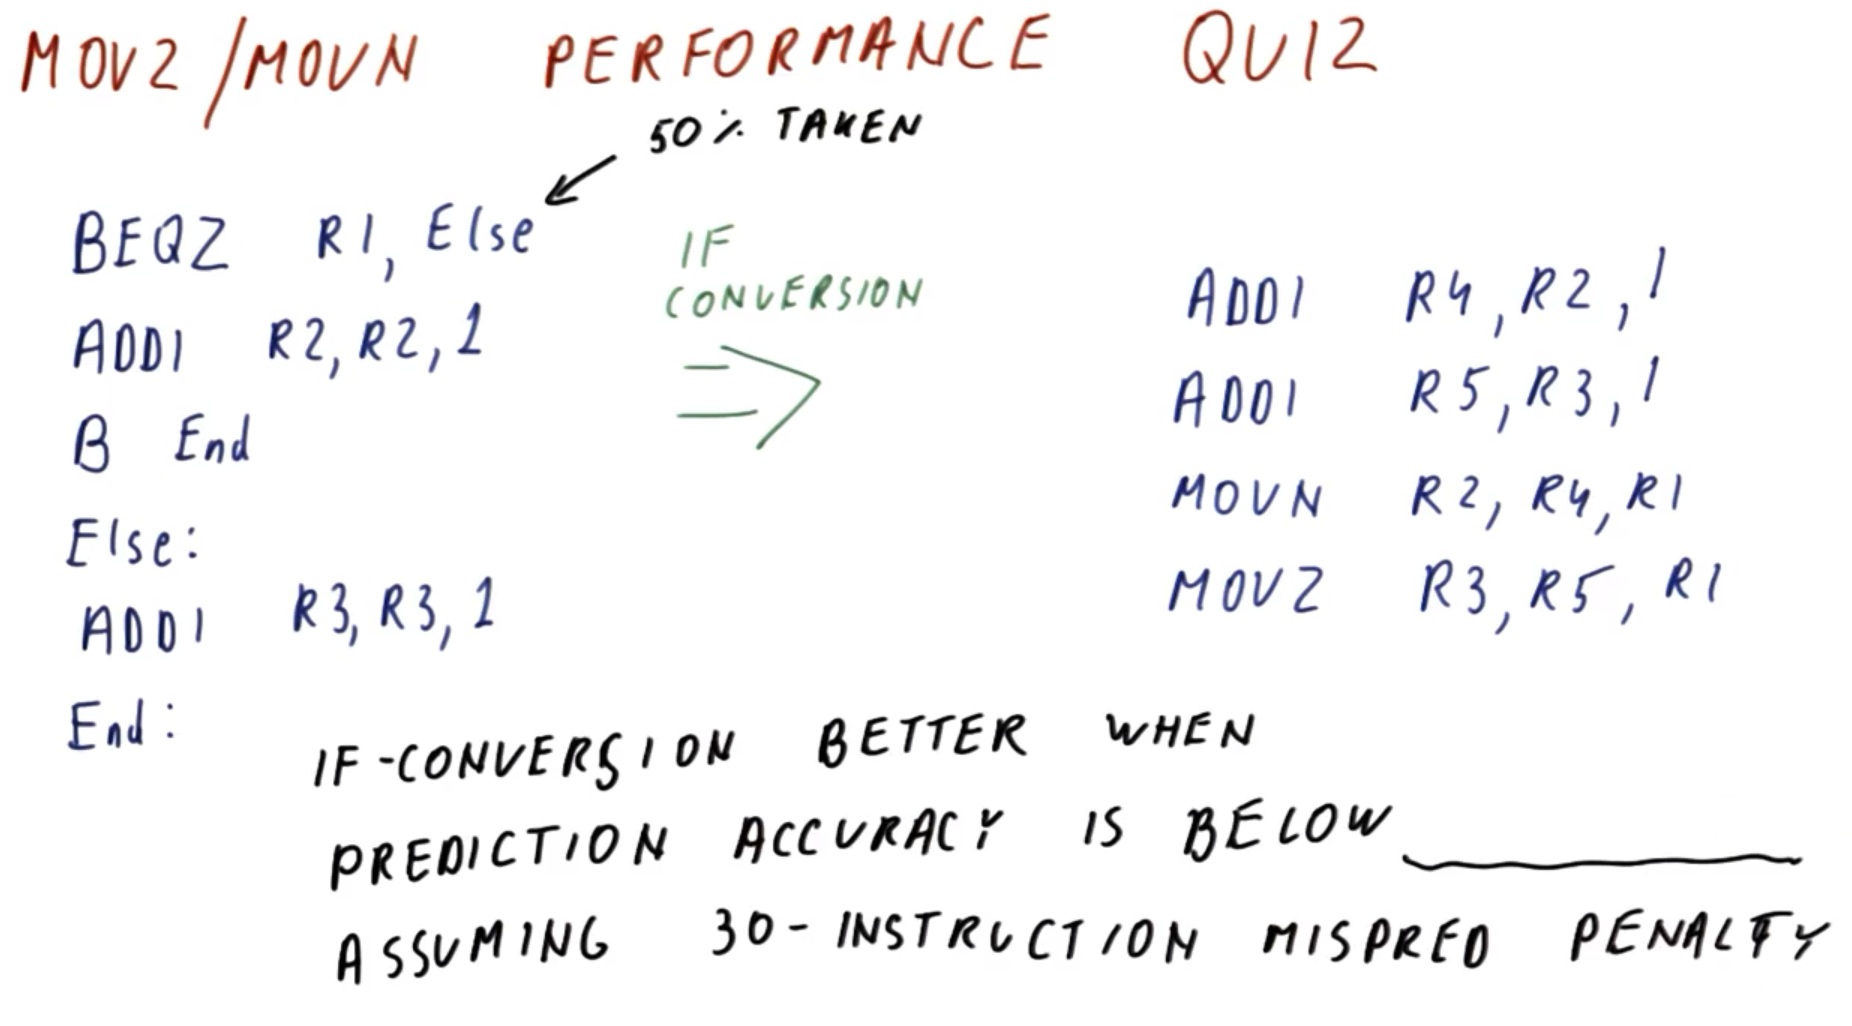 MOVZ/MOVN PERFORMANCE QUIZ
50% TAKEN
BEQZ R1, Else
ADDI R2, R2, 1
B End
Else:
ADDI R3, R3, 1
End:
IF
CONVERSION
ADDI R4, R2, 1
ADDI R5, R3, 1
MOVN R2, R4, R1
MOVZ R3, R5, R1
IF-CONVERSION BETTER WHEN
PREDICTION ACCURACY IS BELOW
ASSUMING 30-INSTRUCTION MISPRED PENALTY